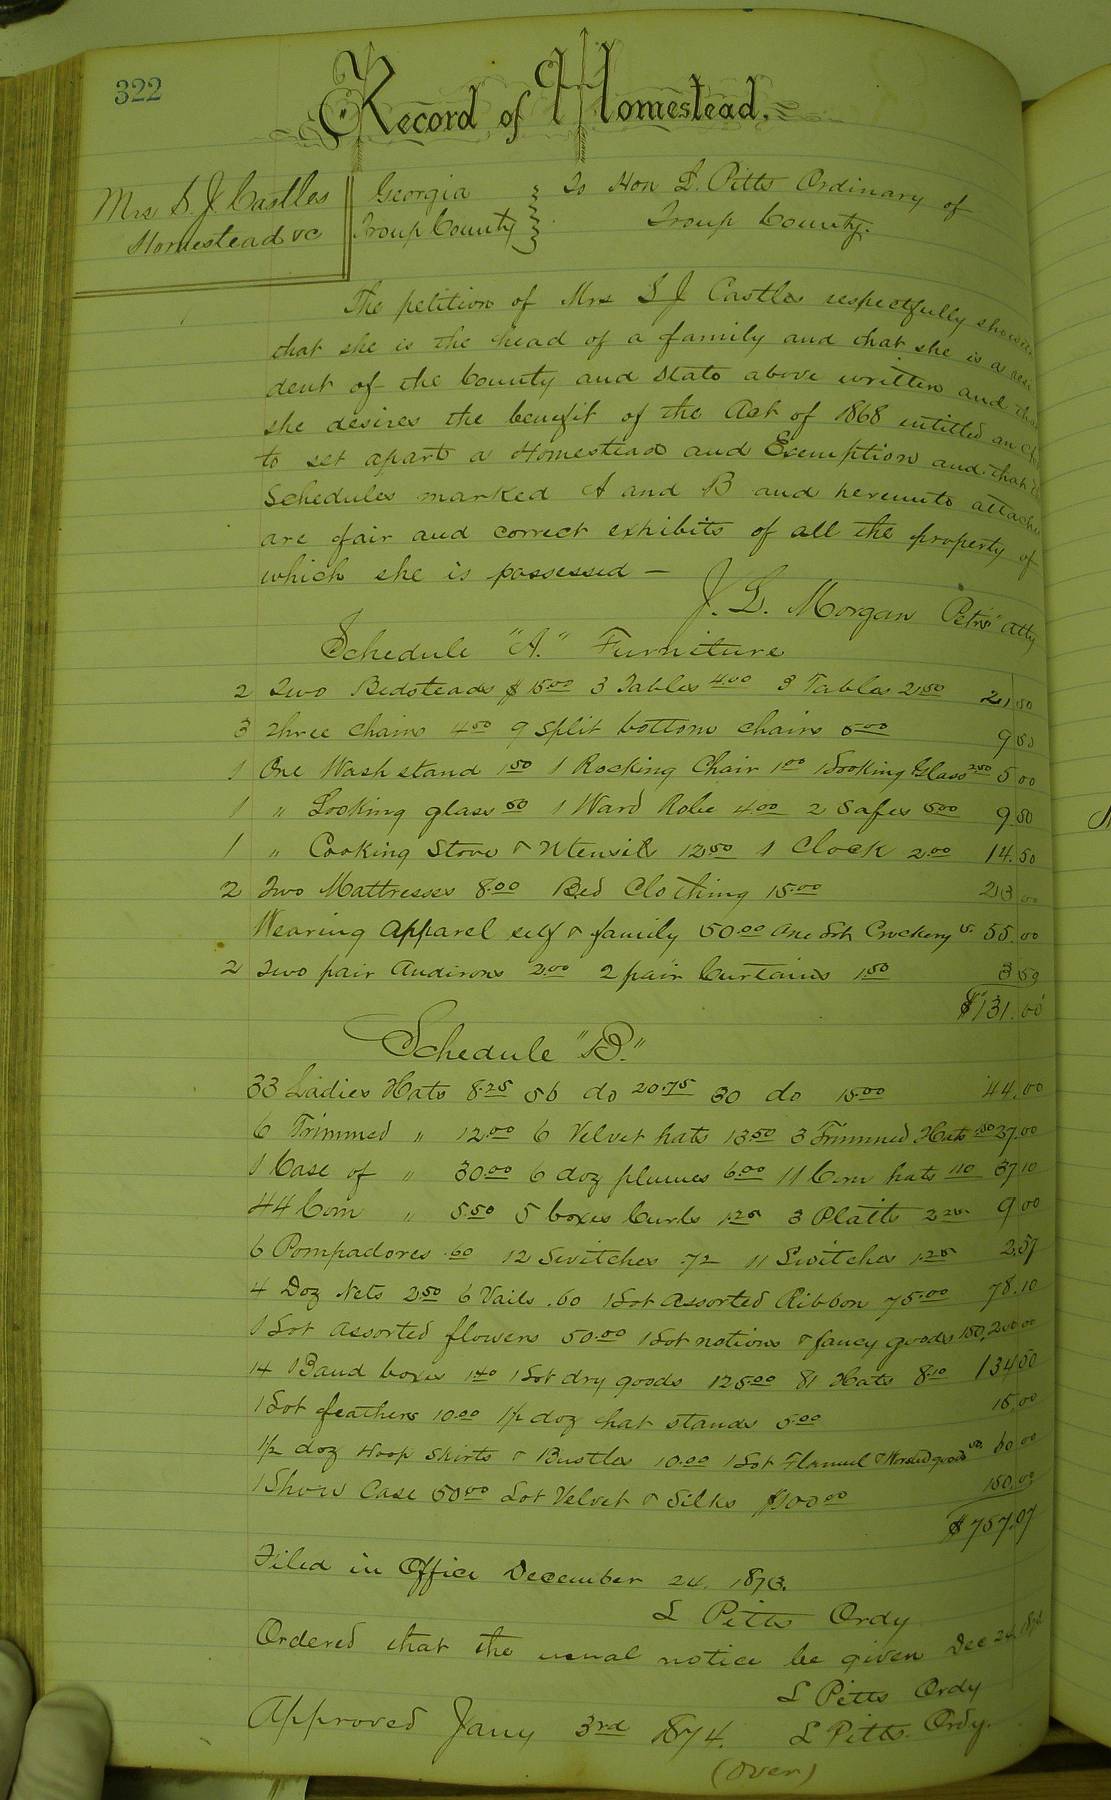 322
Record of Homestead.
Mrs S. J. Castles
Homestead &c
Georgia
Troup County
To Hon L. Pitts Ordinary of
Troup County.
The petition of Mrs S J Castles respectfully shows
that she is the head of a family and that she is a resi
dent of the County and State above written and that
she desires the benefit of the Act of 1868 intitled an Act
to set apart a Homestead and Exemption and that the
Schedules marked A and B and hereunto attached
are fair and correct exhibits of all the property of
which she is possessed —
J. L. Morgan Petrs Atty
Schedule "A." Furniture
2 Two Bedsteads $15.00 3 Tables 4.00 3 Tables 2.50 21.50
3 Three chairs 4.50 9 Split bottom chairs 5.00 9.50
1 One Wash stand 1.50 1 Rocking Chair 1.00 1 Looking Glass 2.50 5.00
1 " Looking glass .50 1 Ward Robe 4.00 2 Safes 5.00 9.50
1 " Cooking Stove & Utensils 12.50 1 Clock 2.00 14.50
2 Two Mattresses 8.00 Bed Clothing 15.00 23.00
Wearing Apparel self & family 50.00 One Lot Crockery 5. 55.00
2 Two pair Andirons 2.00 2 pair Curtains 1.50 3.50
$131.00
Schedule "B."
33 Ladies Hats 8.25 56 do 20.75 30 do 15.00 44.00
6 Trimmed " 12.00 6 Velvet hats 13.50 3 Trimmed Hats 37.00
1 Case of " 30.00 6 doz plumes 6.00 11 Com hats 1.10 37.10
44 Com " 5.50 5 boxes Curls 1.25 3 Platts 2.25 9.00
6 Pompadores .60 12 Switches .72 11 Switches 1.25 2.57
4 Doz Nets 2.50 6 Vails .60 1 Lot Assorted Ribbon 75.00 78.10
1 Lot Assorted flowers 50.00 1 Lot notions & fancy goods 150. 200.00
14 Band boxes 1.40 1 Lot dry goods 125.00 81 Hats 8.10 134.50
1 Lot feathers 10.00 1½ doz hat stands 5.00 15.00
1½ doz Hoop Skirts & Bustles 10.00 1 Lot Flannel & Worsted goods 50. 60.00
1 Show Case 50.00 Lot Velvet & Silks $100.00 150.00
$757.07
Filed in Office December 24. 1873.
L Pitts Ordy
Ordered that the usual notice be given Dec 24.
L Pitts Ordy
Approved Jany 3rd 1874. L Pitts Ordy.
(Over)